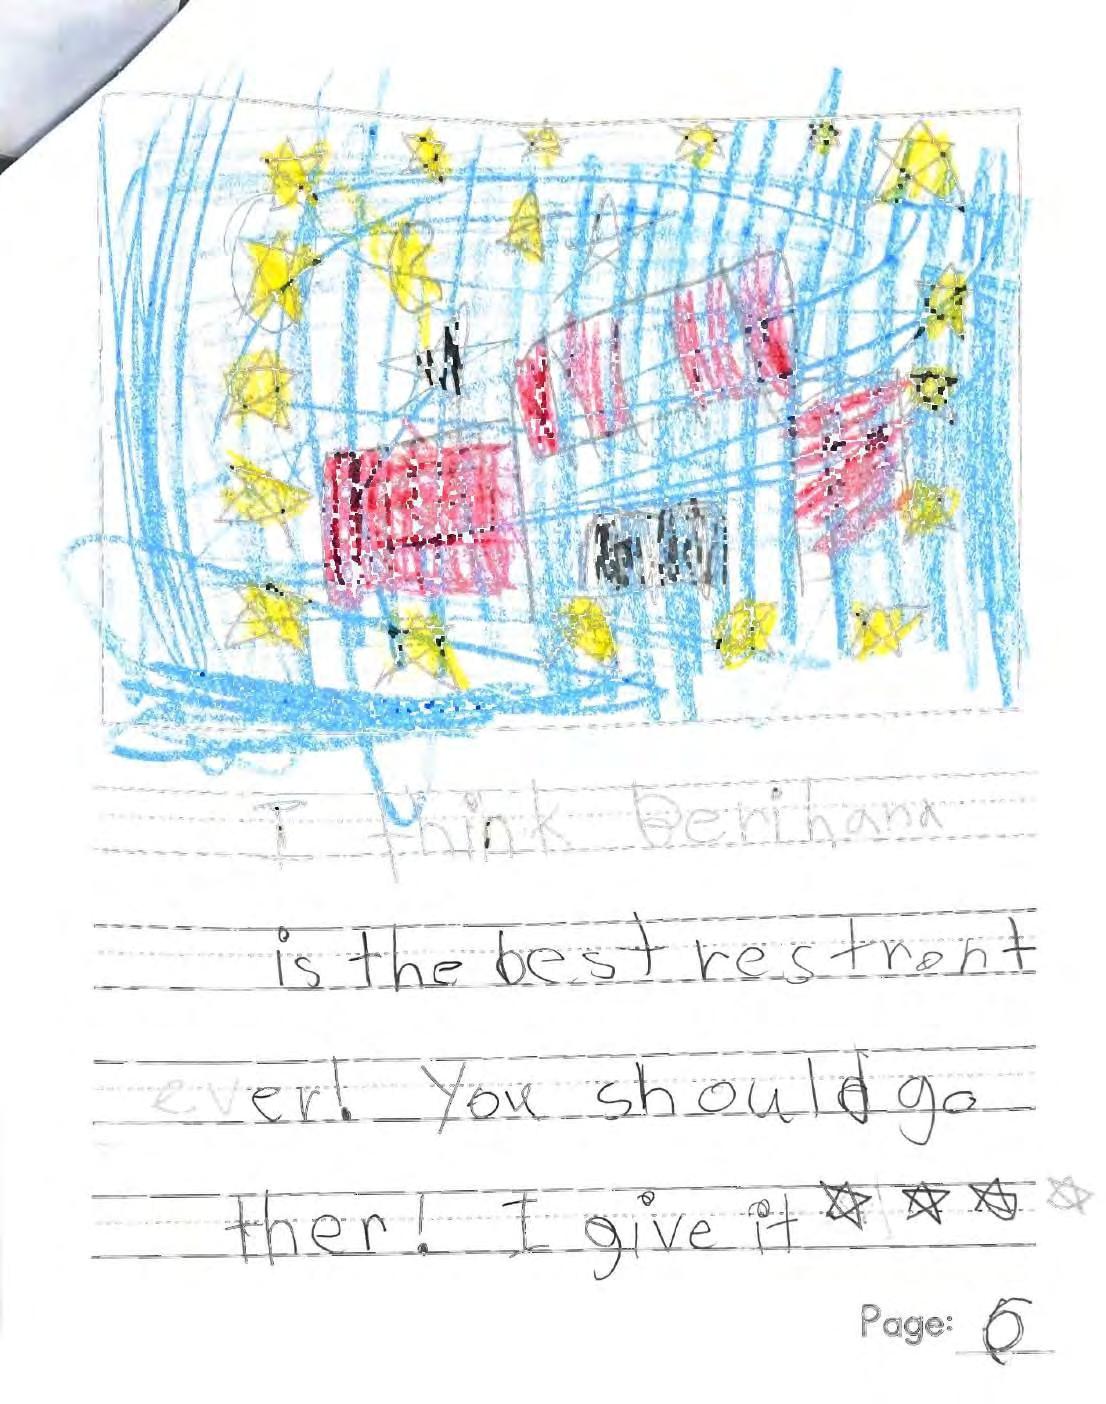 I think Berihana
is the best restront
ever! You should go
ther! I give it ☆ ☆ ☆ ☆
Page: 6